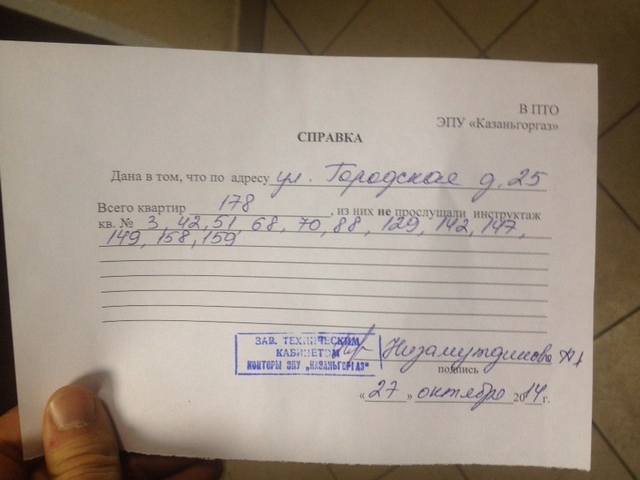 В ПТО
ЭПУ «Казаньгоргаз»
СПРАВКА
Дана в том, что по адресу ул. Городская д. 25
Всего квартир 178, из них не прослушали инструктаж
кв. № 3, 42, 51, 68, 70, 88, 129, 142, 147,
149, 158, 159
ЗАВ. ТЕХНИЧЕСКИМ
КАБИНЕТОМ
КОНТОРЫ ЭПУ „КАЗАНЬГОРГАЗ"
Низамутдинова
подпись
«27» октября 2014г.